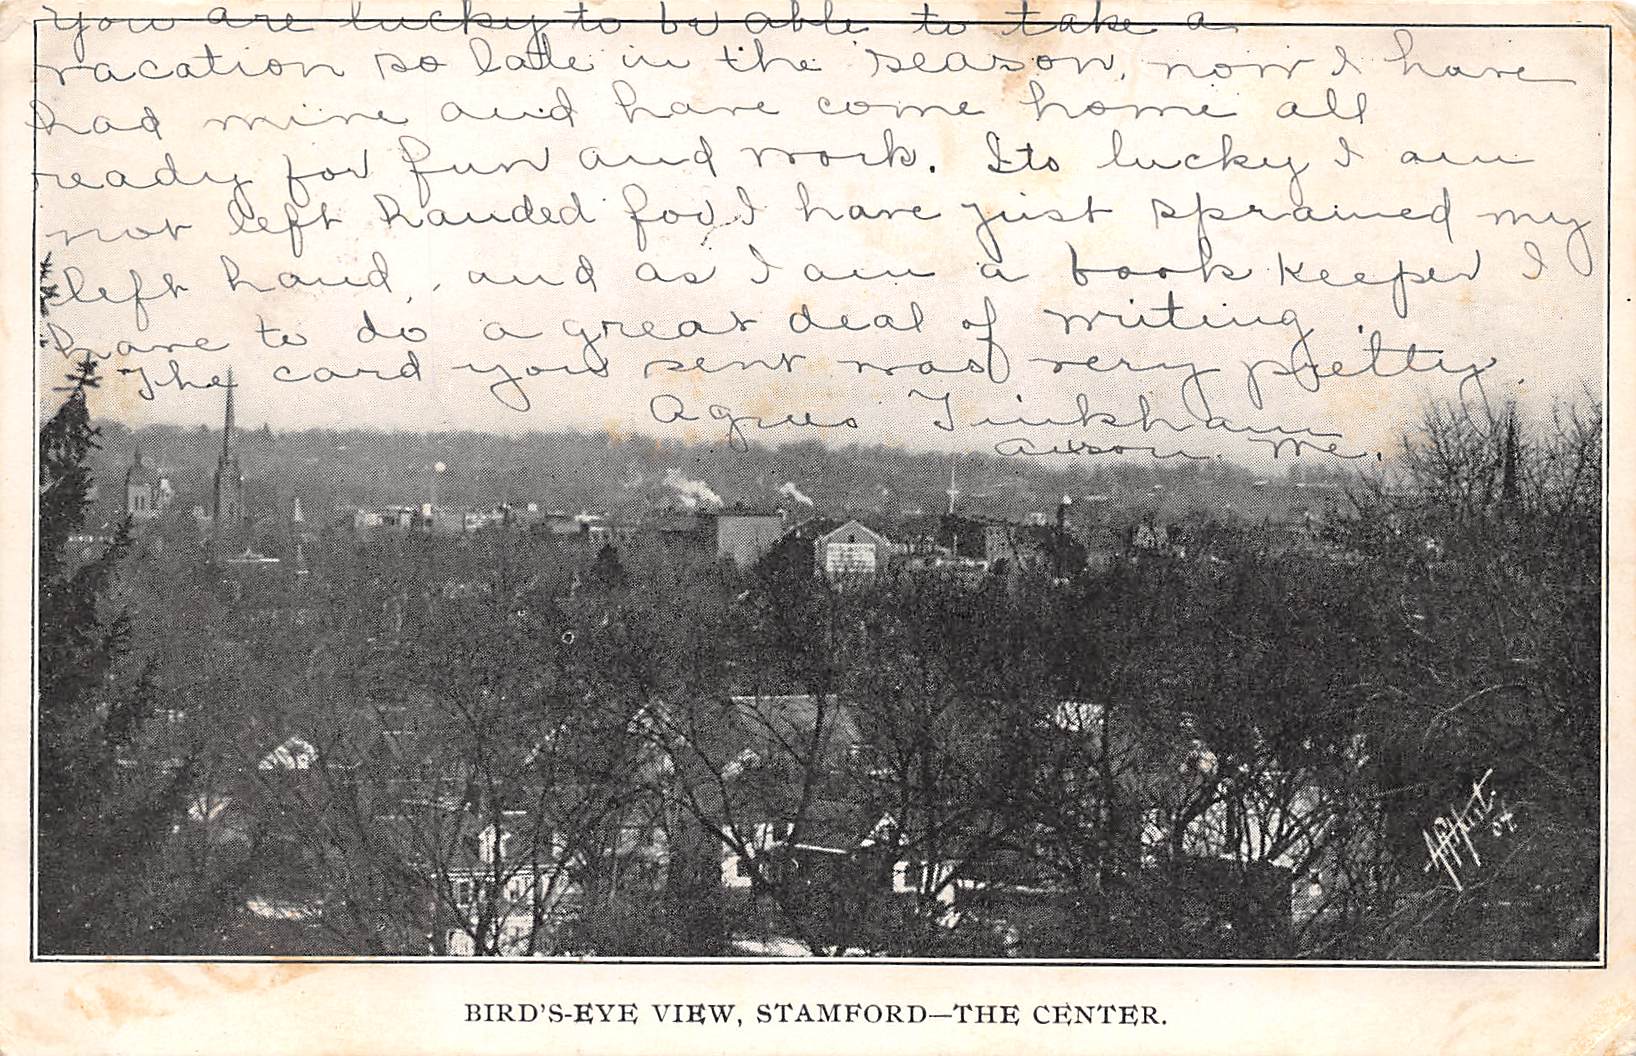 You are lucky to be able to take a
vacation so late in the season, now I have
had mine and have come home all
ready for fun and work. Its lucky I am
not left handed for I have just sprained my
left hand, and as I am a book keeper I
have to do a great deal of writing.
The card you sent was very pretty.
Agnes Tinkham
Anson Me.
04.
BIRD'S-EYE VIEW, STAMFORD—THE CENTER.